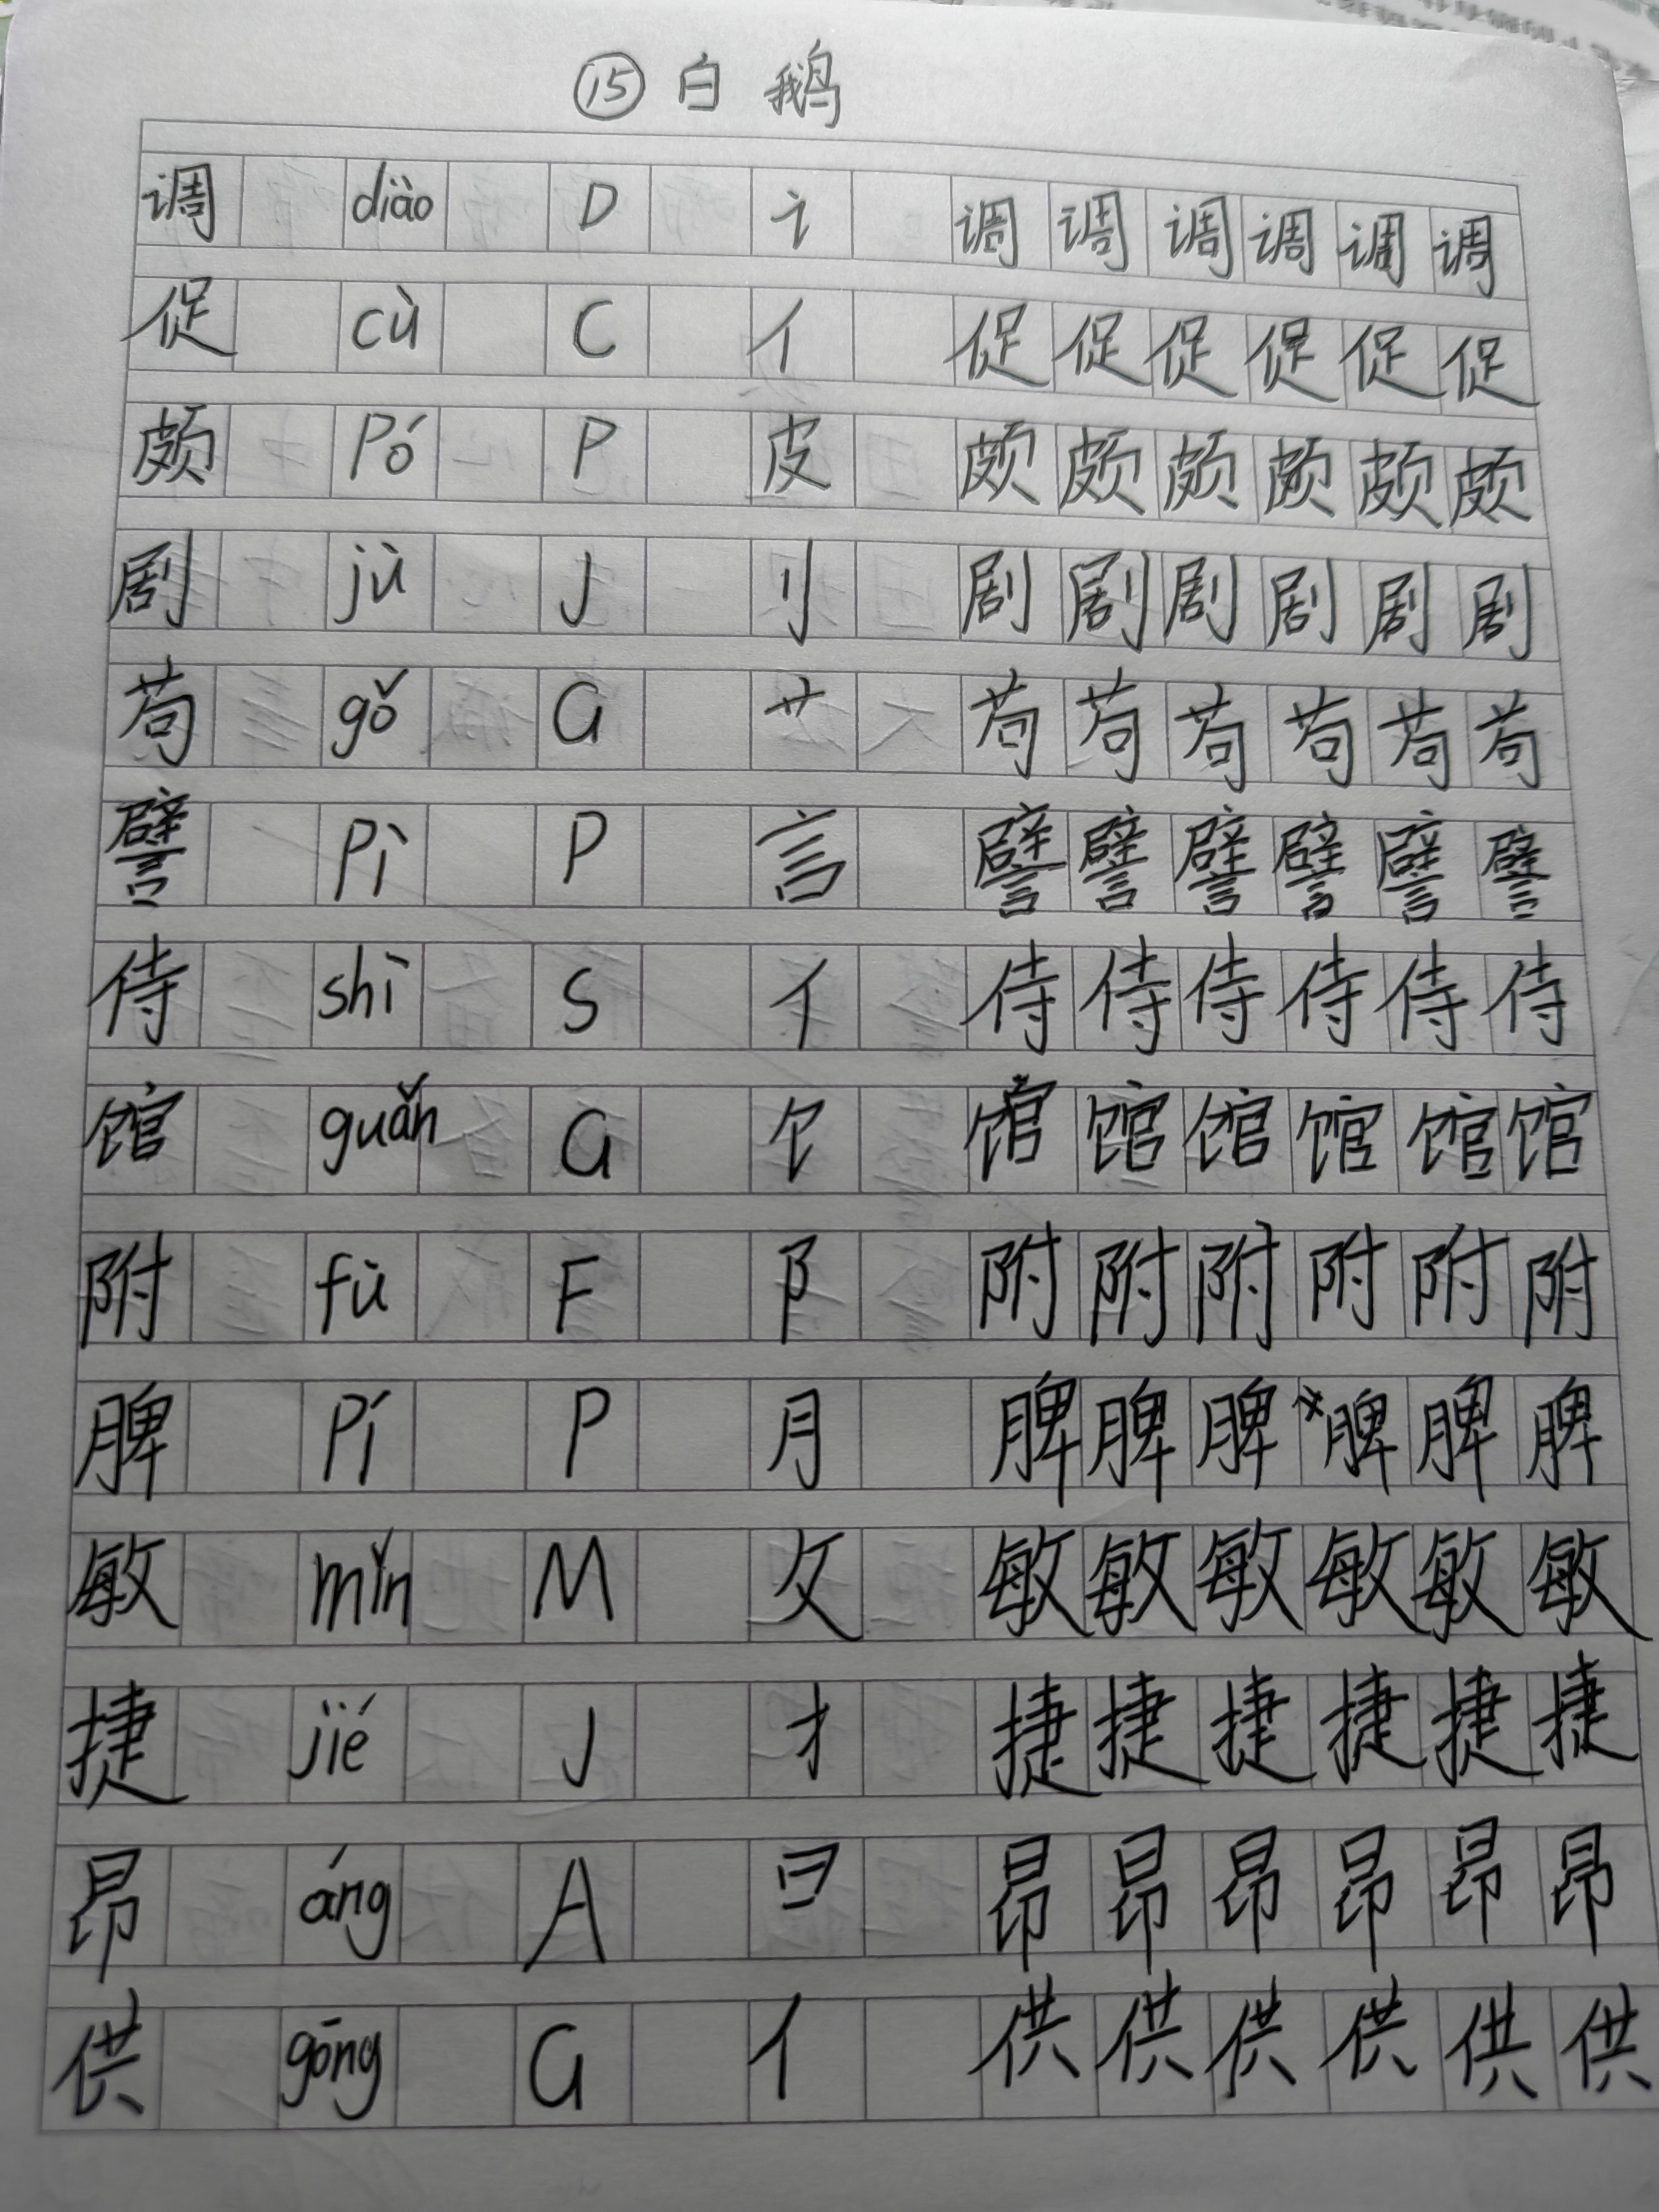 ⑮ 白鹅
调 diào D 讠 调 调 调 调 调 调
促 cù C 亻 促 促 促 促 促 促
颇 Pó P 皮 颇 颇 颇 颇 颇 颇
剧 jù J 刂 剧 剧 剧 剧 剧 剧
苟 gǒ G 艹 苟 苟 苟 苟 苟 苟
譬 Pì P 言 譬 譬 譬 譬 譬 譬
侍 shì S 亻 侍 侍 侍 侍 侍 侍
馆 guǎn G 饣 馆 馆 馆 馆 馆 馆
附 fù F 阝 附 附 附 附 附 附
脾 Pí P 月 脾 脾 脾 脾 脾 脾
敏 mǐn M 攵 敏 敏 敏 敏 敏 敏
捷 jié J 扌 捷 捷 捷 捷 捷 捷
昂 áng A 日 昂 昂 昂 昂 昂 昂
供 gōng G 亻 供 供 供 供 供 供